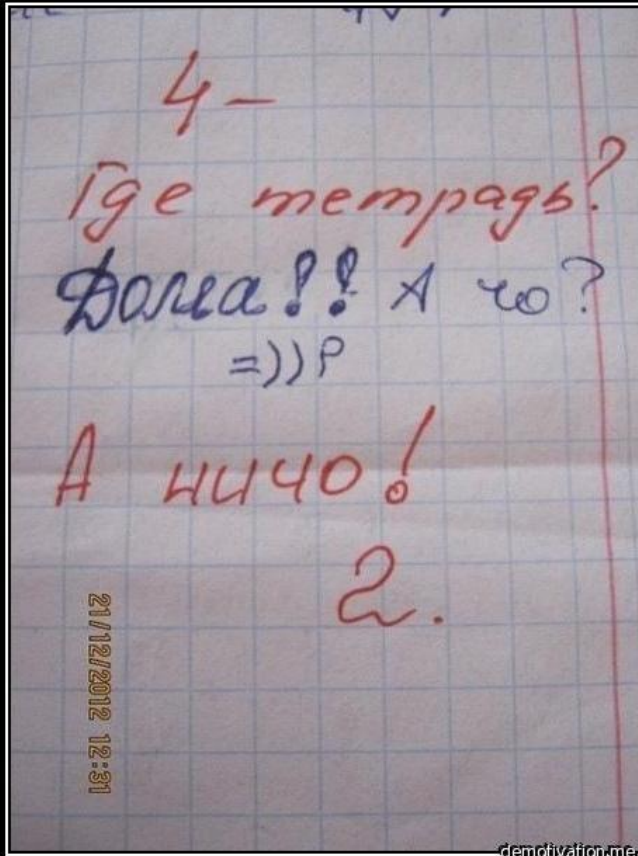 4-
Где тетрадь?
Дома!! А чо?
=))P
А ничо!
2.
21/12/2012 12:31
demotivation.me